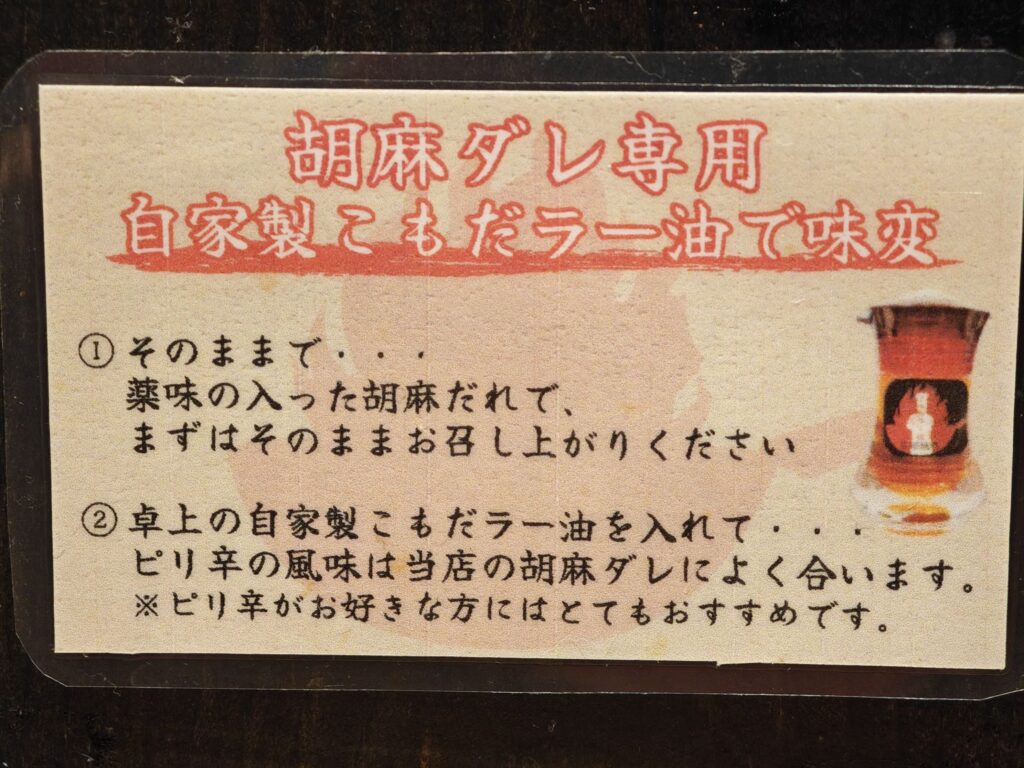 胡麻ダレ専用
自家製こもだラー油で味変
①そのままで・・・
薬味の入った胡麻だれで、
まずはそのままお召し上がりください
②卓上の自家製こもだラー油を入れて・・・
ピリ辛の風味は当店の胡麻ダレによく合います。
※ピリ辛がお好きな方にはとてもおすすめです。